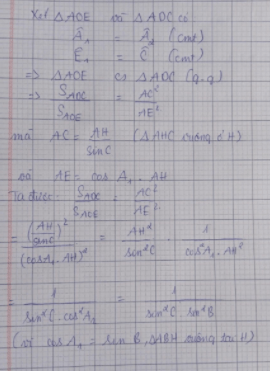 Xét △AOE và △ADC có
Â₁ = Â₂ (cmt)
Ê₁ = Ĉ (cmt)
=> △AOE ∽ △ADC (g.g)
=> S_ADC / S_AOE = AC² / AE²
mà AC = AH / sinC (△AHC vuông ở H)
và AE = cos A₁ . AH
Ta được: S_ADC / S_AOE = AC² / AE²
= (AH / sinC)² / (cosA₁ . AH)² = AH² / sin²C . 1 / cos²A₁ . AH²
= 1 / sin²C . cos²A₁ = 1 / sin²C sin²B
(vì cos A₁ = sin B, △ABH vuông tại H)